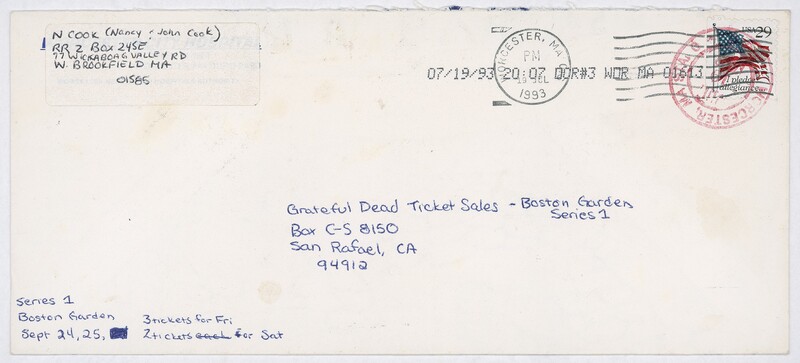 N COOK (Nancy & John Cook)
RR 2 Box 245E
77 WICKABOAG VALLEY RD
W. BROOKFIELD MA
01585
WORCESTER, MA
PM
19 JUL
1993
07/19/93 20:07 OCR#3 WOR MA 01613
USA 29
I pledge
allegiance...
WORCESTER, MA
Grateful Dead Ticket Sales - Boston Garden
Series 1
Box C-S 8150
San Rafael, CA
94912
Series 1
Boston Garden 3 tickets for Fri
Sept 24, 25, 2 tickets each for Sat